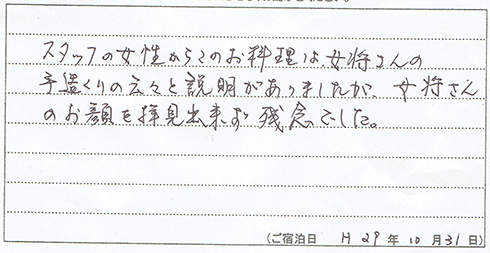 スタッフの女性からこのお料理は、女将さんの
手造くりの云々と説明がありましたが、女将さん
のお顔を拝見出来ず残念でした。
(ご宿泊日 H29年10月31日)